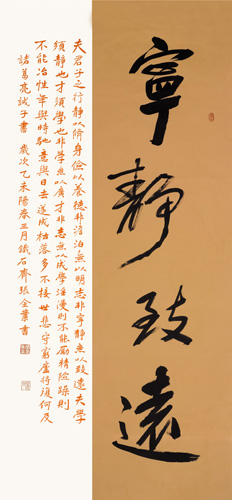 寧靜致遠
夫君子之行靜以脩身儉以養德非淡泊無以明志非寧靜無以致遠夫學
須靜也才須學也非學無以廣才非志無以成學淫漫則不能勵精險躁則
不能冶性年與時馳意與日去遂成枯落多不接世悲守窮廬將復何及
諸葛亮誡子書 歲次乙未陽春三月鐵石齋張金業書